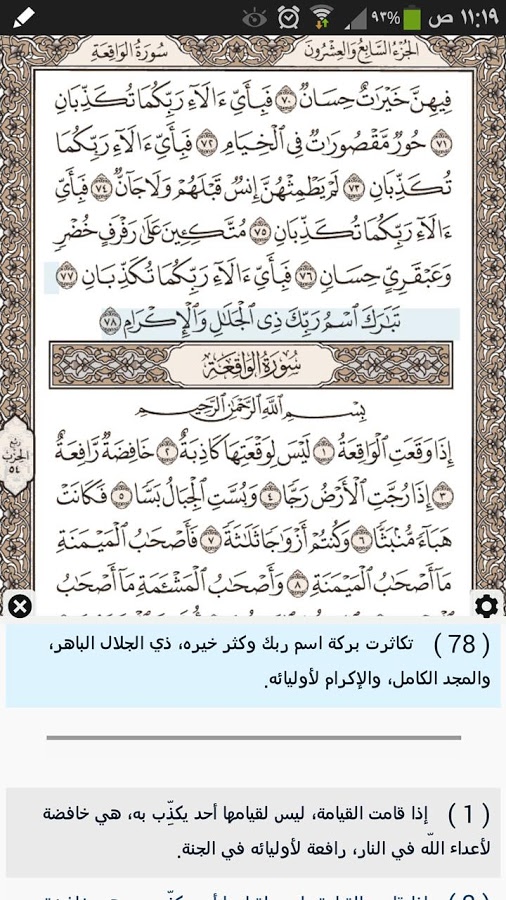 ١١:١٩ ص ٩٣%
الجزء السابع والعشرون سورة الواقعة
فِيهِنَّ خَيْرَاتٌ حِسَانٌ ٧٠ فَبِأَيِّ ءَالَاءِ رَبِّكُمَا تُكَذِّبَانِ
٧١ حُورٌ مَّقْصُورَاتٌ فِي الْخِيَامِ ٧٢ فَبِأَيِّ ءَالَاءِ رَبِّكُمَا
تُكَذِّبَانِ ٧٣ لَمْ يَطْمِثْهُنَّ إِنسٌ قَبْلَهُمْ وَلَا جَانٌّ ٧٤ فَبِأَيِّ
ءَالَاءِ رَبِّكُمَا تُكَذِّبَانِ ٧٥ مُتَّكِئِينَ عَلَى رَفْرَفٍ خُضْرٍ
وَعَبْقَرِيٍّ حِسَانٍ ٧٦ فَبِأَيِّ ءَالَاءِ رَبِّكُمَا تُكَذِّبَانِ ٧٧
تَبَارَكَ اسْمُ رَبِّكَ ذِي الْجَلَالِ وَالْإِكْرَامِ ٧٨
سُورَةُ الْوَاقِعَةِ
بِسْمِ اللَّهِ الرَّحْمَٰنِ الرَّحِيمِ
إِذَا وَقَعَتِ الْوَاقِعَةُ ١ لَيْسَ لِوَقْعَتِهَا كَاذِبَةٌ ٢ خَافِضَةٌ رَّافِعَةٌ
٣ إِذَا رُجَّتِ الْأَرْضُ رَجًّا ٤ وَبُسَّتِ الْجِبَالُ بَسًّا ٥ فَكَانَتْ
هَبَاءً مُّنبَثًّا ٦ وَكُنتُمْ أَزْوَاجًا ثَلَاثَةً ٧ فَأَصْحَابُ الْمَيْمَنَةِ
مَا أَصْحَابُ الْمَيْمَنَةِ ٨ وَأَصْحَابُ الْمَشْئَمَةِ مَا أَصْحَابُ
ربع الحزب ٥٤
( 78 ) تكاثرت بركة اسم ربك وكثر خيره، ذي الجلال الباهر،
والمجد الكامل، والإكرام لأوليائه.
( 1 ) إذا قامت القيامة، ليس لقيامها أحد يكذِّب به، هي خافضة
لأعداء اللّه في النار، رافعة لأوليائه في الجنة.